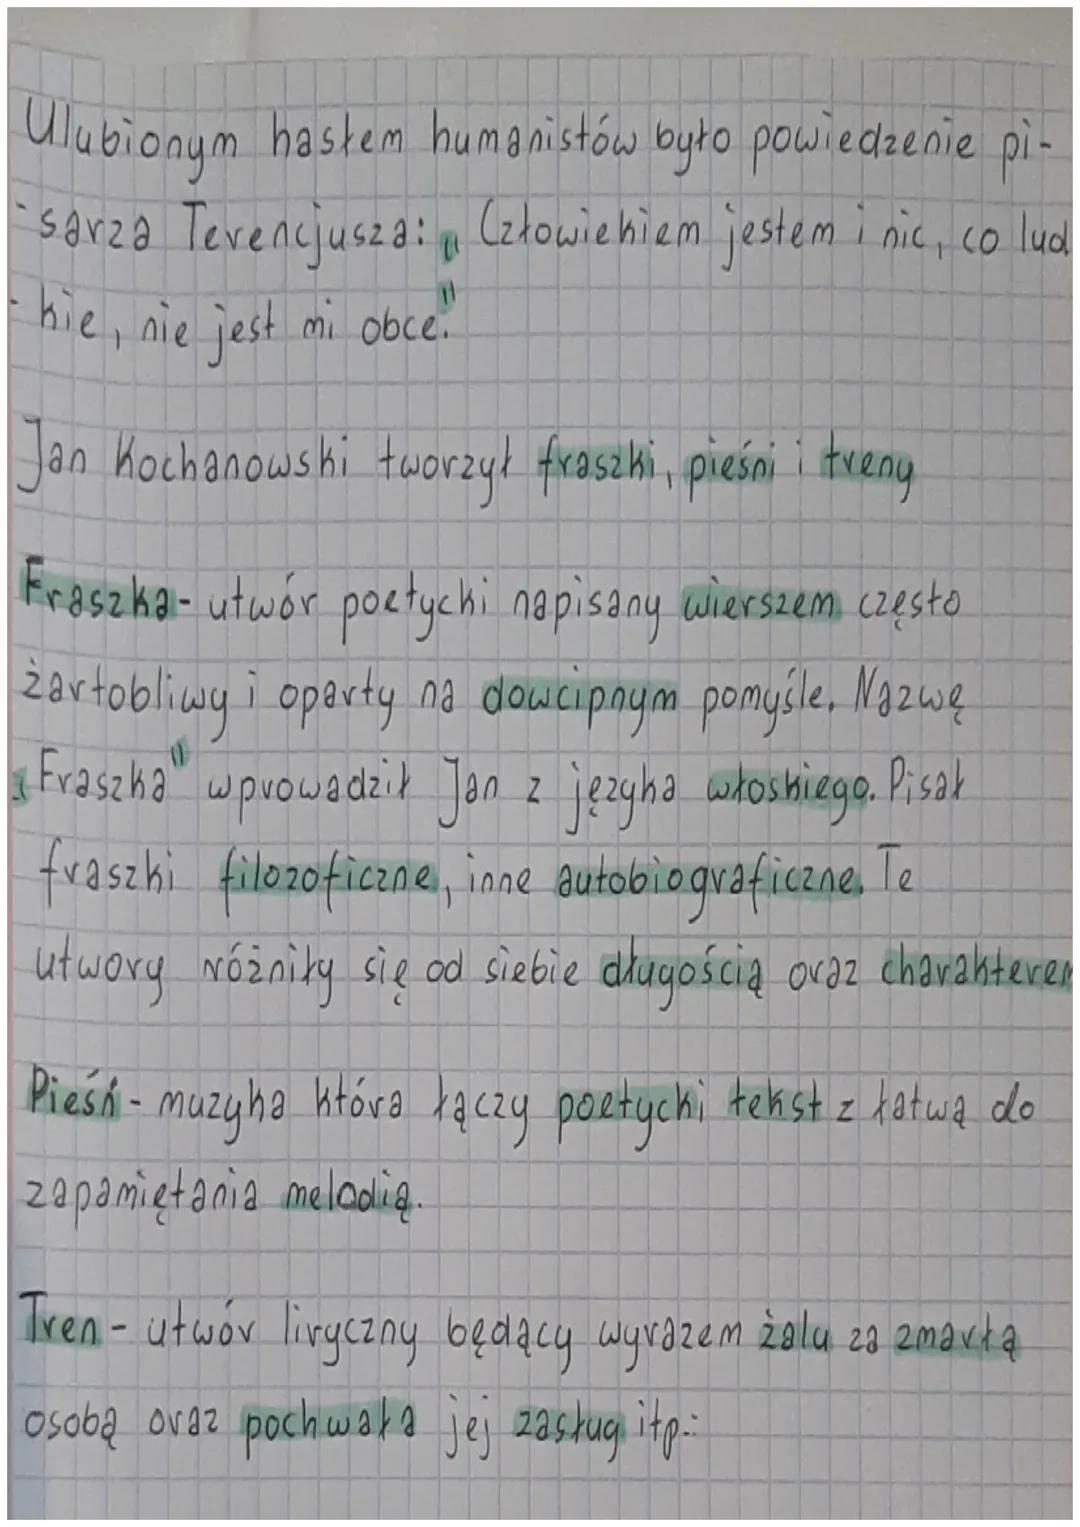 Ulubionym hasłem humanistów było powiedzenie pi-
-sarza Terencjusza: „Człowiekiem jestem i nic, co lud
-kie, nie jest mi obce."
Jan Kochanowski tworzył fraszki, pieśni i treny
Fraszka - utwór poetycki napisany wierszem często
żartobliwy i oparty na dowcipnym pomyśle. Nazwę
„Fraszka" wprowadził Jan z języka włoskiego. Pisał
fraszki filozoficzne, inne autobiograficzne. Te
utwory różniły się od siebie długością oraz charakterem
Pieśń - muzyka która łączy poetycki tekst z łatwą do
zapamiętania melodią.
Tren - utwór liryczny będący wyrazem żalu za zmarłą
osobą oraz pochwała jej zasług itp.: